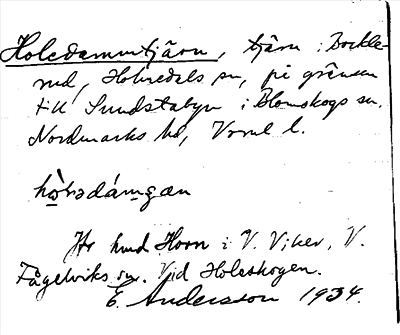 Holedammtjärn, tjärn i Bockle-
rud, Holmedals sn, på gränsen
till Sundstabyn i Blomskogs sn.
Nordmarks hd, Vrml l.
Jfr hmd Horn i V. Viker, V.
Fågelviks sn. Vid Holeskogen.
E. Andersson 1934.